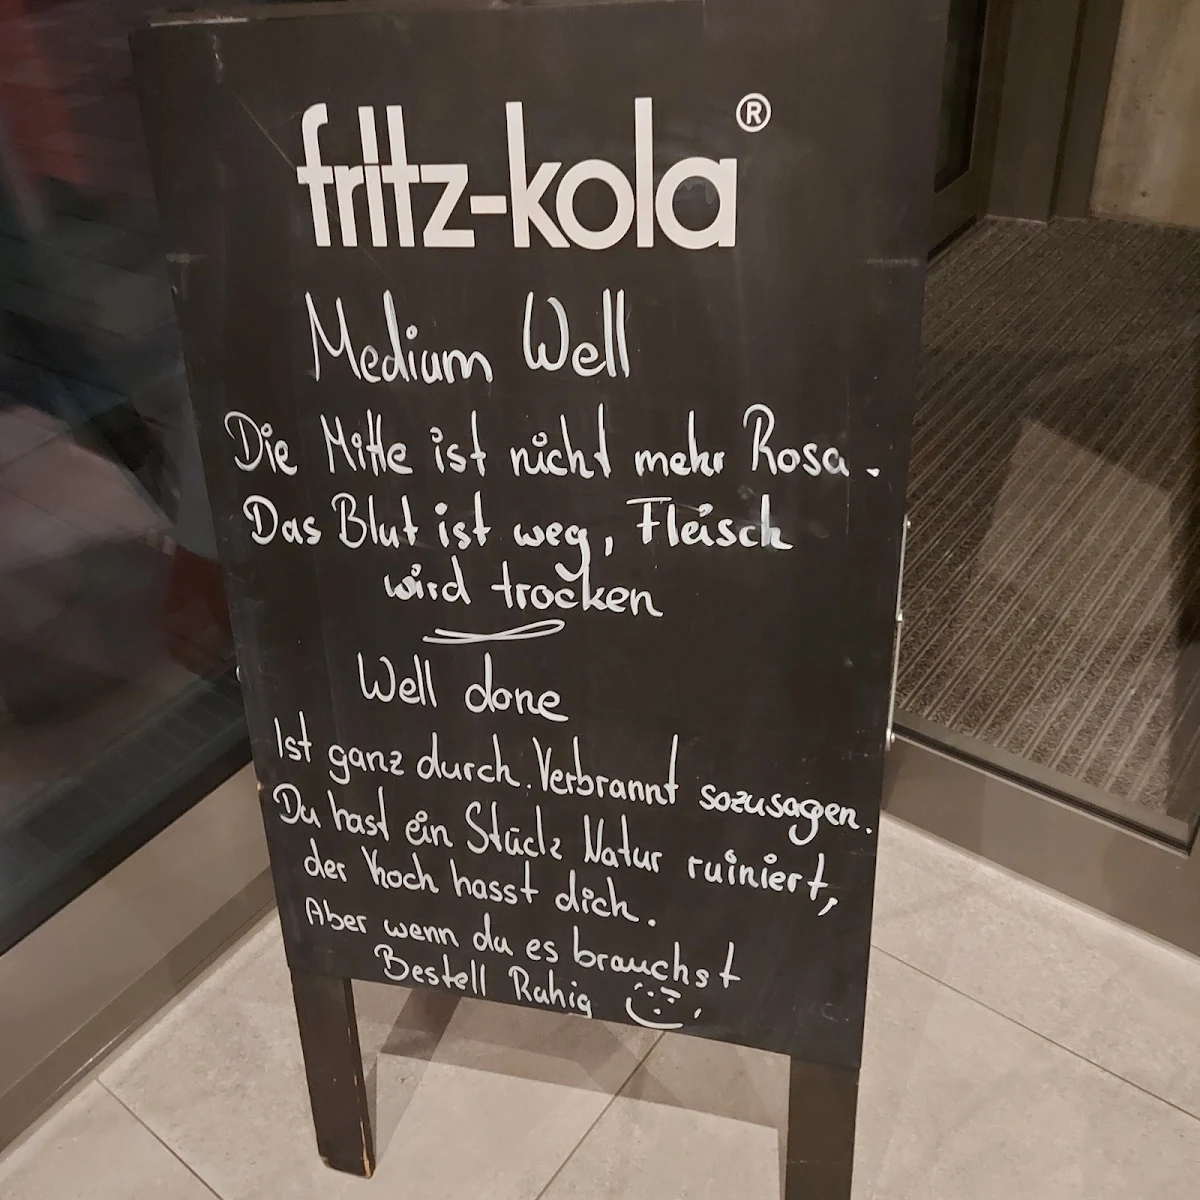 fritz-kola®
Medium Well
Die Mitte ist nicht mehr Rosa.
Das Blut ist weg, Fleisch
wird trocken
Well done
Ist ganz durch. Verbrannt sozusagen.
Du hast ein Stück Natur ruiniert,
der Koch hasst dich.
Aber wenn du es brauchst
Bestell Ruhig